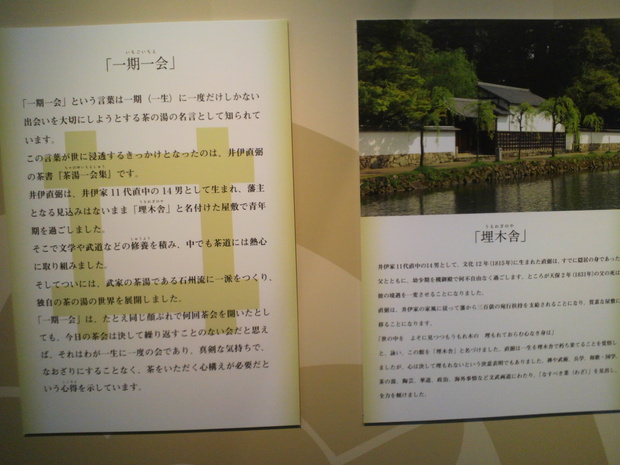 いちごいちえ
「一期一会」
「一期一会」という言葉は一期（一生）に一度だけしかない
出会いを大切にしようとする茶の湯の名言として知られて
います。
この言葉が世に浸透するきっかけとなったのは、井伊直弼
の茶書『茶湯一会集』です。
井伊直弼は、井伊家11代直中の14男として生まれ、藩主
となる見込みはないまま「埋木舎」と名付けた屋敷で青年
期を過ごしました。
そこで文学や武道などの修養を積み、中でも茶道には熱心
に取り組みました。
そしてついには、武家の茶湯である石州流に一派をつくり、
独自の茶の湯の世界を展開しました。
「一期一会」は、たとえ同じ顔ぶれで何回茶会を開いたとし
ても、今日の茶会は決して繰り返すことのない会だと思え
ば、それはわが一生に一度の会であり、真剣な気持ちで、
なおざりにすることなく、茶をいただく心構えが必要だと
いう心得を示しています。
うもれぎのや
「埋木舎」
井伊家11代直中の14男として、文化12年(1815年)に生まれた直弼は、すでに隠居の身であった
父とともに、幼少期を槻御殿で何不自由なく過ごします。ところが天保2年(1831年)の父の死は
彼の境遇を一変させることになりました。
直弼は、井伊家の家風に従って藩から三百俵の宛行扶持を支給されることになり、質素な屋敷に
移ることになります。
「世の中を　よそに見つつもうもれ木の　埋もれておらむ心なき身は」
と、詠い、この館を「埋木舎」と名づけました。直弼は一生を埋木舎で朽ち果てることを覚悟し
ましたが、心は決して埋もれないという決意表明でもありました。禅や武術、兵学、和歌・国学、
茶の湯、陶芸、華道、政治、海外事情など文武両道にわたり、「なすべき業（わざ）」を見出し、
全力を傾けました。